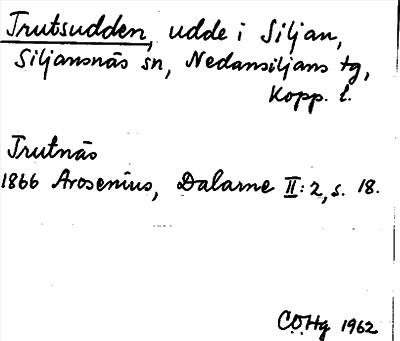 Trutsudden, udde i Siljan,
Siljansnäs sn, Nedansiljans tg,
Kopp. l.
Trutnäs
1866 Arosenius, Dalarne II:2, s. 18.
COHg 1962